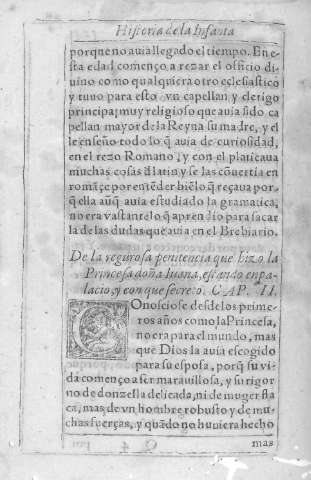 Historia de la Infanta
porque no auia llegado el tiempo. En e-
sta edad començo a rezar el officio di-
uino como qualquiera otro eclesiastico
y tuuo para esto vn capellan y clerigo
principal muy religioso que auia sido ca
pellan mayor de la Reyna su madre, y el
le enseño todo lo q̃ auia de curiosidad,
en el rezo Romano, y con el platicaua
muchas cosas ẽ latin y se las cõuertia en
romãçe por entẽder biẽ lo q̃ reçaua por-
q̃ ella aũq̃ auia estudiado la gramatica,
no era vastante lo q̃ aprendio para sacar
la de las dudas que auia en el Brebiario.
De la regurosa penitencia que hizo la
Princesa doña Iuana, estando en pa-
lacio, y con que secreto. CAP. II.
COnosciose desde los prime-
ros años como la Princesa,
no era para el mundo, mas
que Dios la auia escogido
para su esposa, porq̃ su vi-
da començo a ser marauillosa, y su rigor
no de donzella delicada, ni de muger fla
ca, mas de vn hombre robusto y de mu-
chas fuerças, y quãdo no huuiera hecho
mas